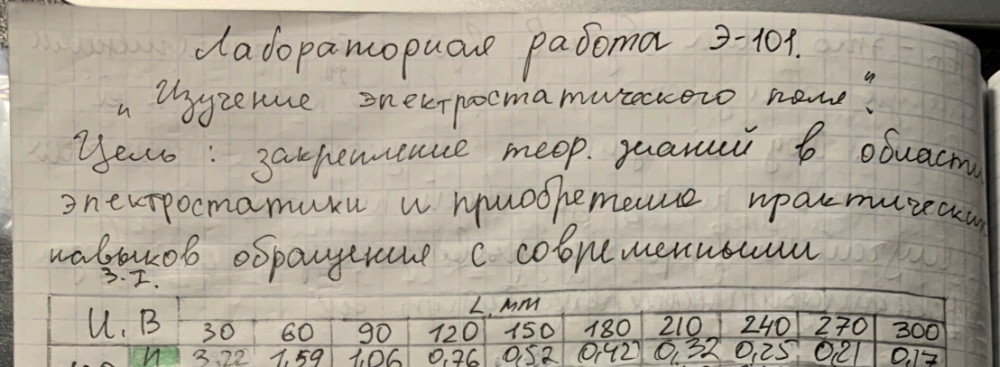 Лабораторная работа Э-101.
„Изучение электростатического поля".
Цель: закрепление теор. знаний в области
электростатики и приобретение практических
навыков обращения с современными
З.I.
L, мм
U, В 30 60 90 120 150 180 210 240 270 300
И 3.22 1,59 1,06 0,76 0,52 0,42 0,32 0,25 0,21 0,17